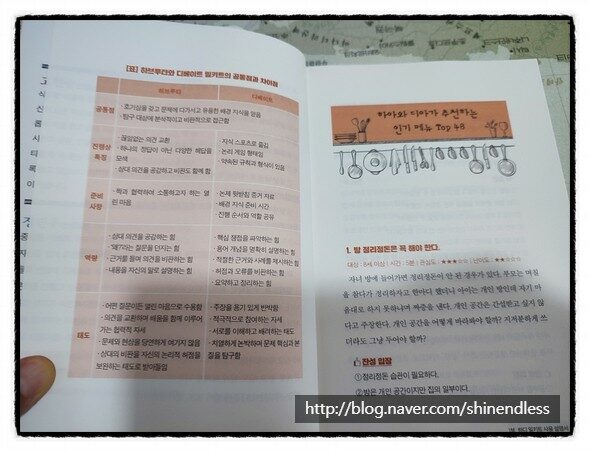 [표] 하브루타와 디베이트 밀키트의 공통점과 차이점
하브루타
디베이트
공통점
· 호기심을 갖고 문제에 다가서고 유용한 배경 지식을 얻음
· 탐구 대상에 분석적이고 비판적으로 접근함
진행상
특징
· 끊임없는 의견 교환
· 하나의 정답이 아닌 다양한 해답을
모색
· 상대 의견을 공감하고 비판도 함께 함
· 지식 스포츠로 즐김
· 논리 게임 형태임
· 약속된 규칙과 형식이 있음
준비
사항
· 짝과 협력하여 소통하고자 하는 열
린 마음
· 논제 뒷받침 증거 자료
· 배경 지식 준비 시간
· 진행 순서와 역할 공유
역량
· 상대 의견을 공감하는 힘
· '왜?'라는 질문을 던지는 힘
· 근거를 들어 의견을 비판하는 힘
· 내용을 자신의 말로 설명하는 힘
· 핵심 쟁점을 파악하는 힘
· 용어 개념을 명확히 설명하는 힘
· 적절한 근거와 사례를 제시하는 힘
· 허점과 오류를 비판하는 힘
· 요약하고 정리하는 힘
태도
· 어떤 질문이든 열린 마음으로 수용함
· 의견을 교환하며 배움을 함께 이루어
가는 협력적 자세
· 문제와 현상을 당연하게 여기지 않음
· 상대의 비판을 자신의 논리적 허점을
보완하는 태도로 받아들임
· 주장을 용기 있게 반박함
· 적극적으로 참여하는 자세
· 서로를 이해하고 배려하는 태도
· 치열하게 논박하며 문제 핵심과 본
질을 탐구함
하이와 디아가 추천하는
인기 메뉴 Top 48
1. 방 정리정돈은 꼭 해야 한다.
대상 : 8세 이상 | 시간 : 5분 | 관심도 : ★★★☆☆ | 난이도 : ★★☆☆☆
자녀 방에 들어가면 정리정돈이 안 된 경우가 있다. 부모는 며칠
을 참다가 정리하자고 한마디 했더니 아이는 개인 방인데 자기 마
음대로 하지 못하냐며 짜증을 낸다. 개인 공간은 간섭받고 싶지 않
다고 주장한다. 개인 공간을 어떻게 바라봐야 할까? 지저분하게 쓰
더라도 그냥 두어야 할까?
찬성 입장
①정리정돈 습관이 필요하다.
②방은 개인 공간이지만 집의 일부이다.
하디 밀키트 사용 설명서
http://blog.naver.com/shinendless